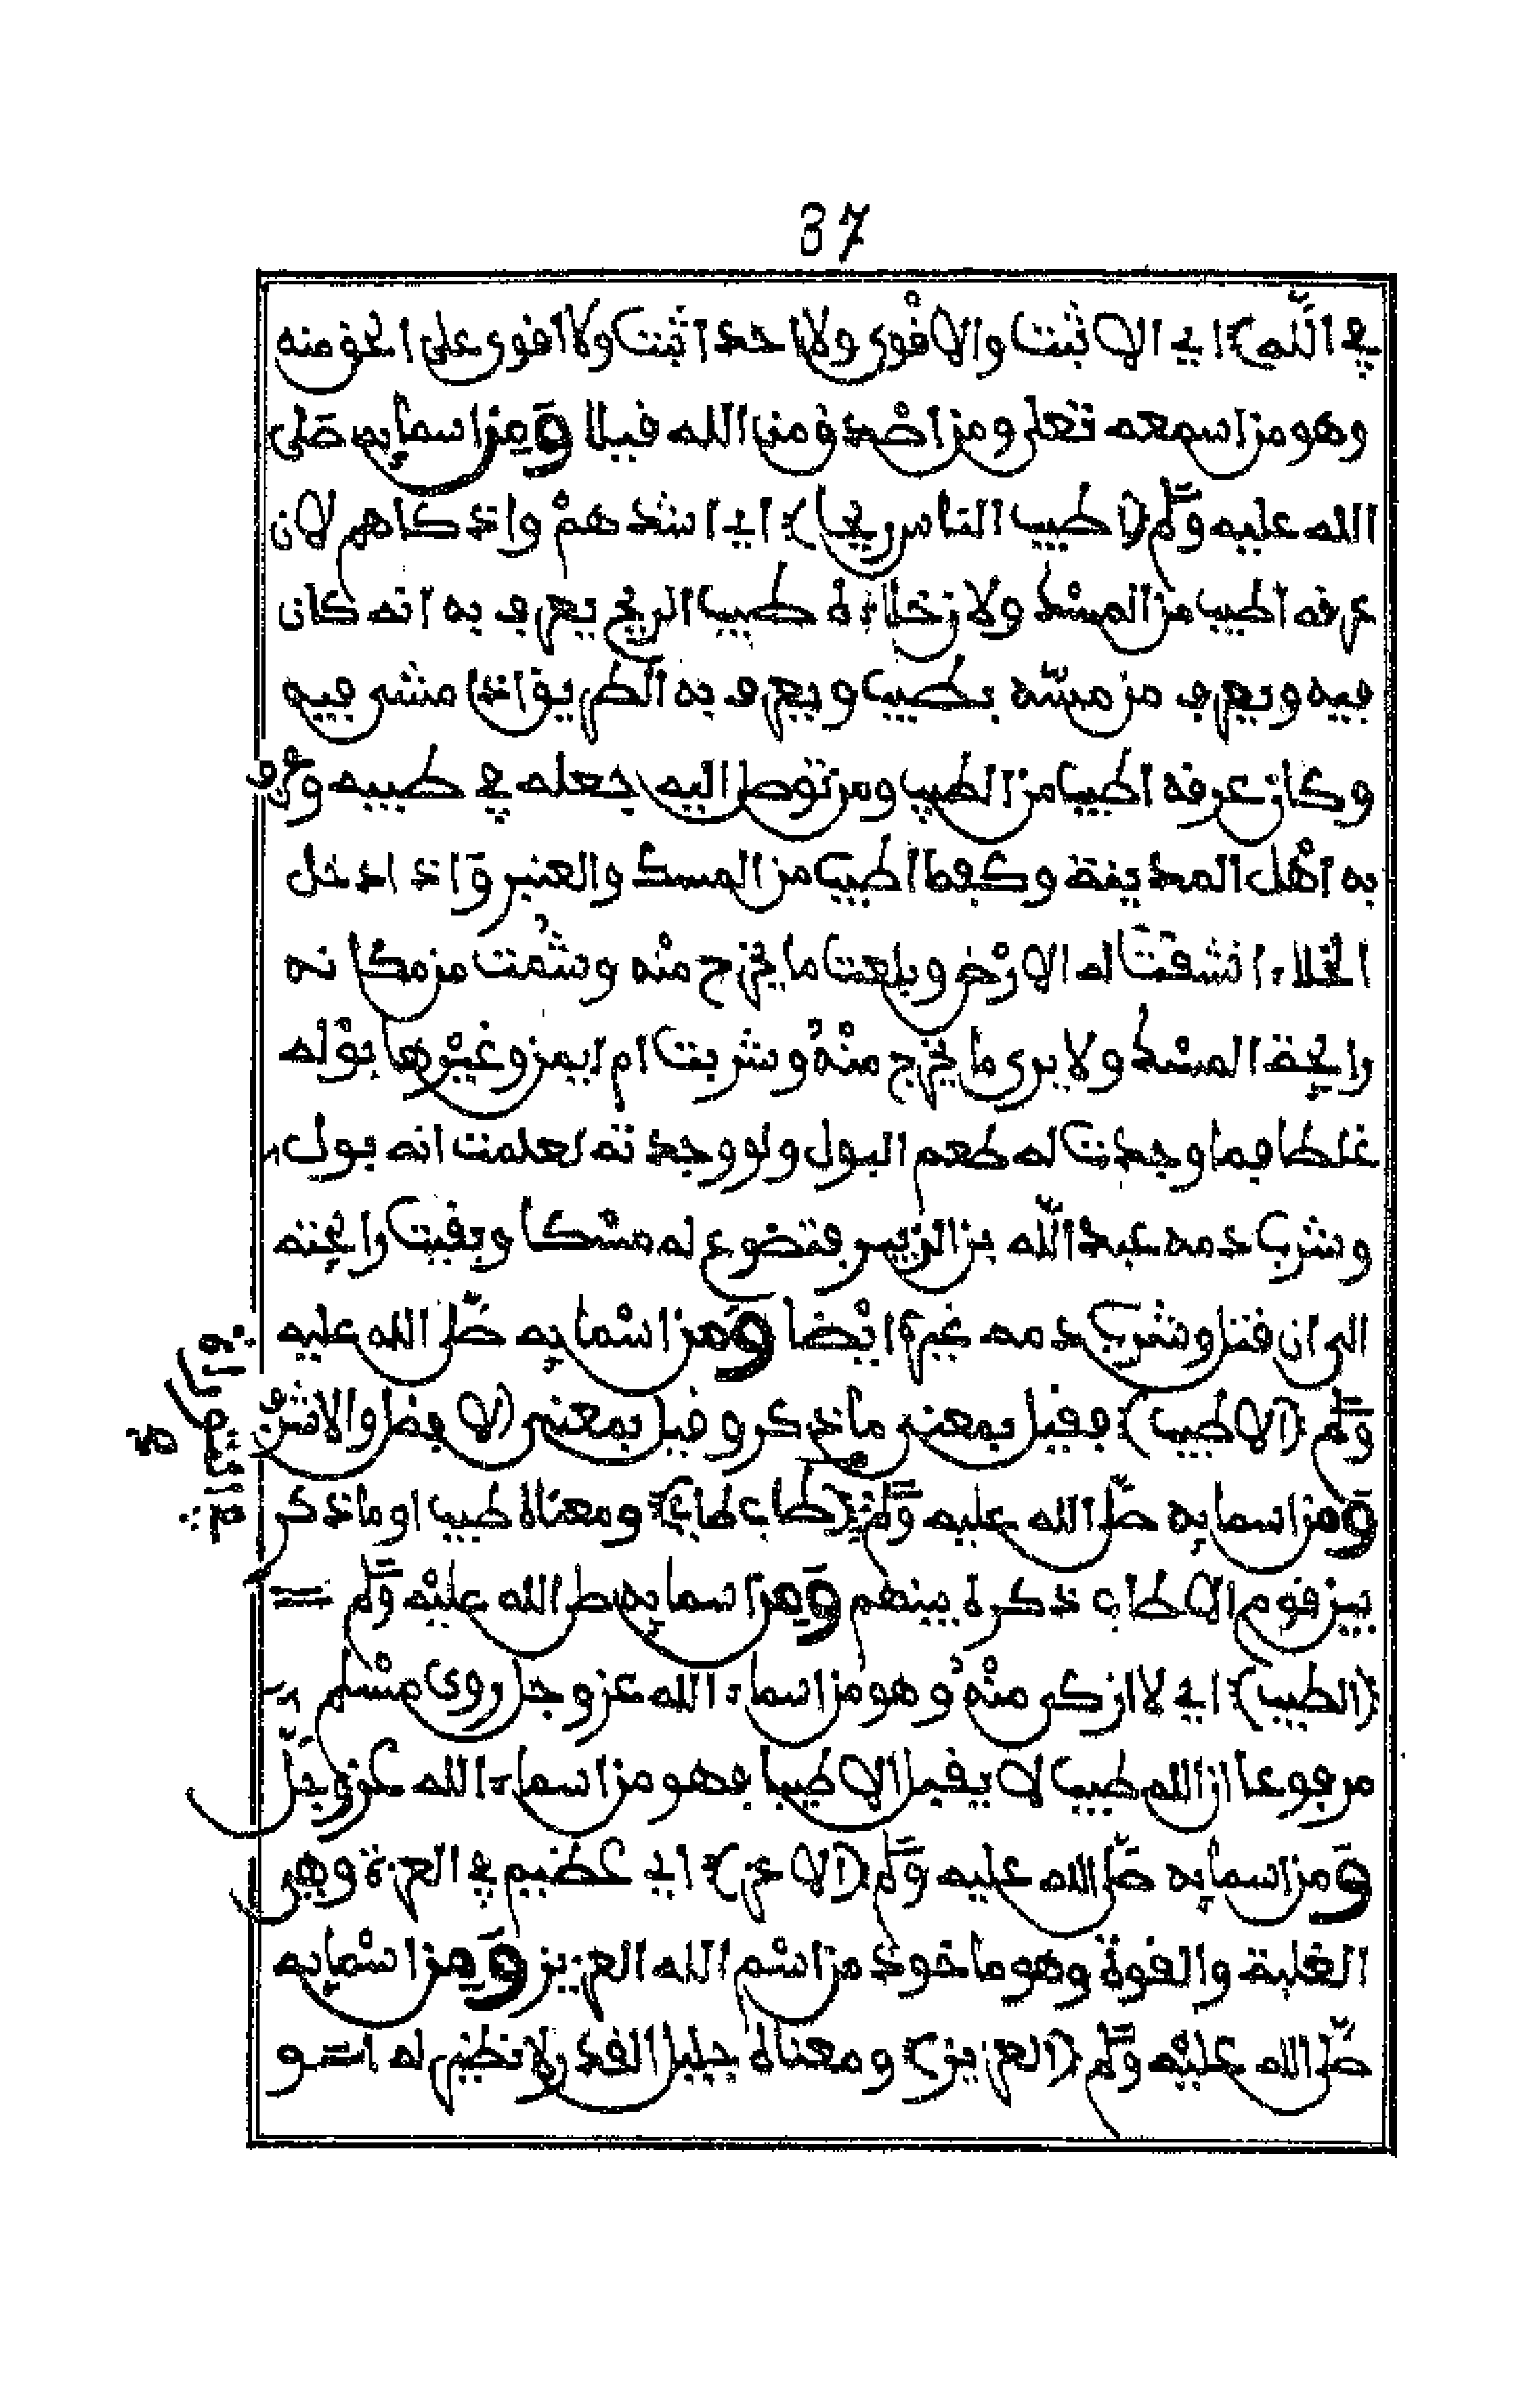 37
في الله) اي الاثبت والاقوى ولا احد اثبت ولا اقوى على الحق منه
وهو من اسمعه تعلى ومن اصدق من الله قيلا ومن اسمايه صلى
الله عليه وسلم (اطيب الناس ريحا) اي اشدهم واذكاهم لان
عرقه اطيب من المسك ولا طيب الريح يعرف به انه كان
فيه ويعرف من مسه بطيب ويعرف به الطريق اذا مشى فيه
وكان عرقه اطيب من الطيب ومن توصل اليه جعله في طيبه
به اهل المدينة وكفها اطيب من المسك والعنبر واذا دخل
الخلاء انشقت له الارض وبلعت ما يخرج منه وشمت من مكانه
رايحة المسك ولا يرى ما يخرج منه وشربت ام ايمن وغيرها بوله
غلطا فما وجدت له طعم البول ولو وجدته لعلمت انه بول
وشرب دمه عبد الله بن الزبير فتضوع له مسكا وبقيت رايحته
الى ان قتل وشرب دمه غيره ايضا ومن اسمايه صلى الله عليه
وسلم (الاطيب) فقيل بمعنى ما ذكر وقيل بمعنى الافضل والاشرف
ومن اسمايه صلى الله عليه وسلم (طاب طاب) ومعناه طيب او ما ذكر
بين قوم الا طاب ذكره بينهم ومن اسمايه صلى الله عليه وسلم
(الطيب) اي لا ازكى منه وهو من اسماء الله عز وجل روى مسلم
مرفوعا ان الله طيب لا يقبل الا طيبا فهو من اسماء الله عز وجل
ومن اسمايه صلى الله عليه وسلم (الاعز) اي عظيم في العزة وهي
الغلبة والقوة وهو ماخوذ من اسم الله العزيز ومن اسمايه
صلى الله عليه وسلم (العزيز) ومعناه جليل القدر لا نظير له او